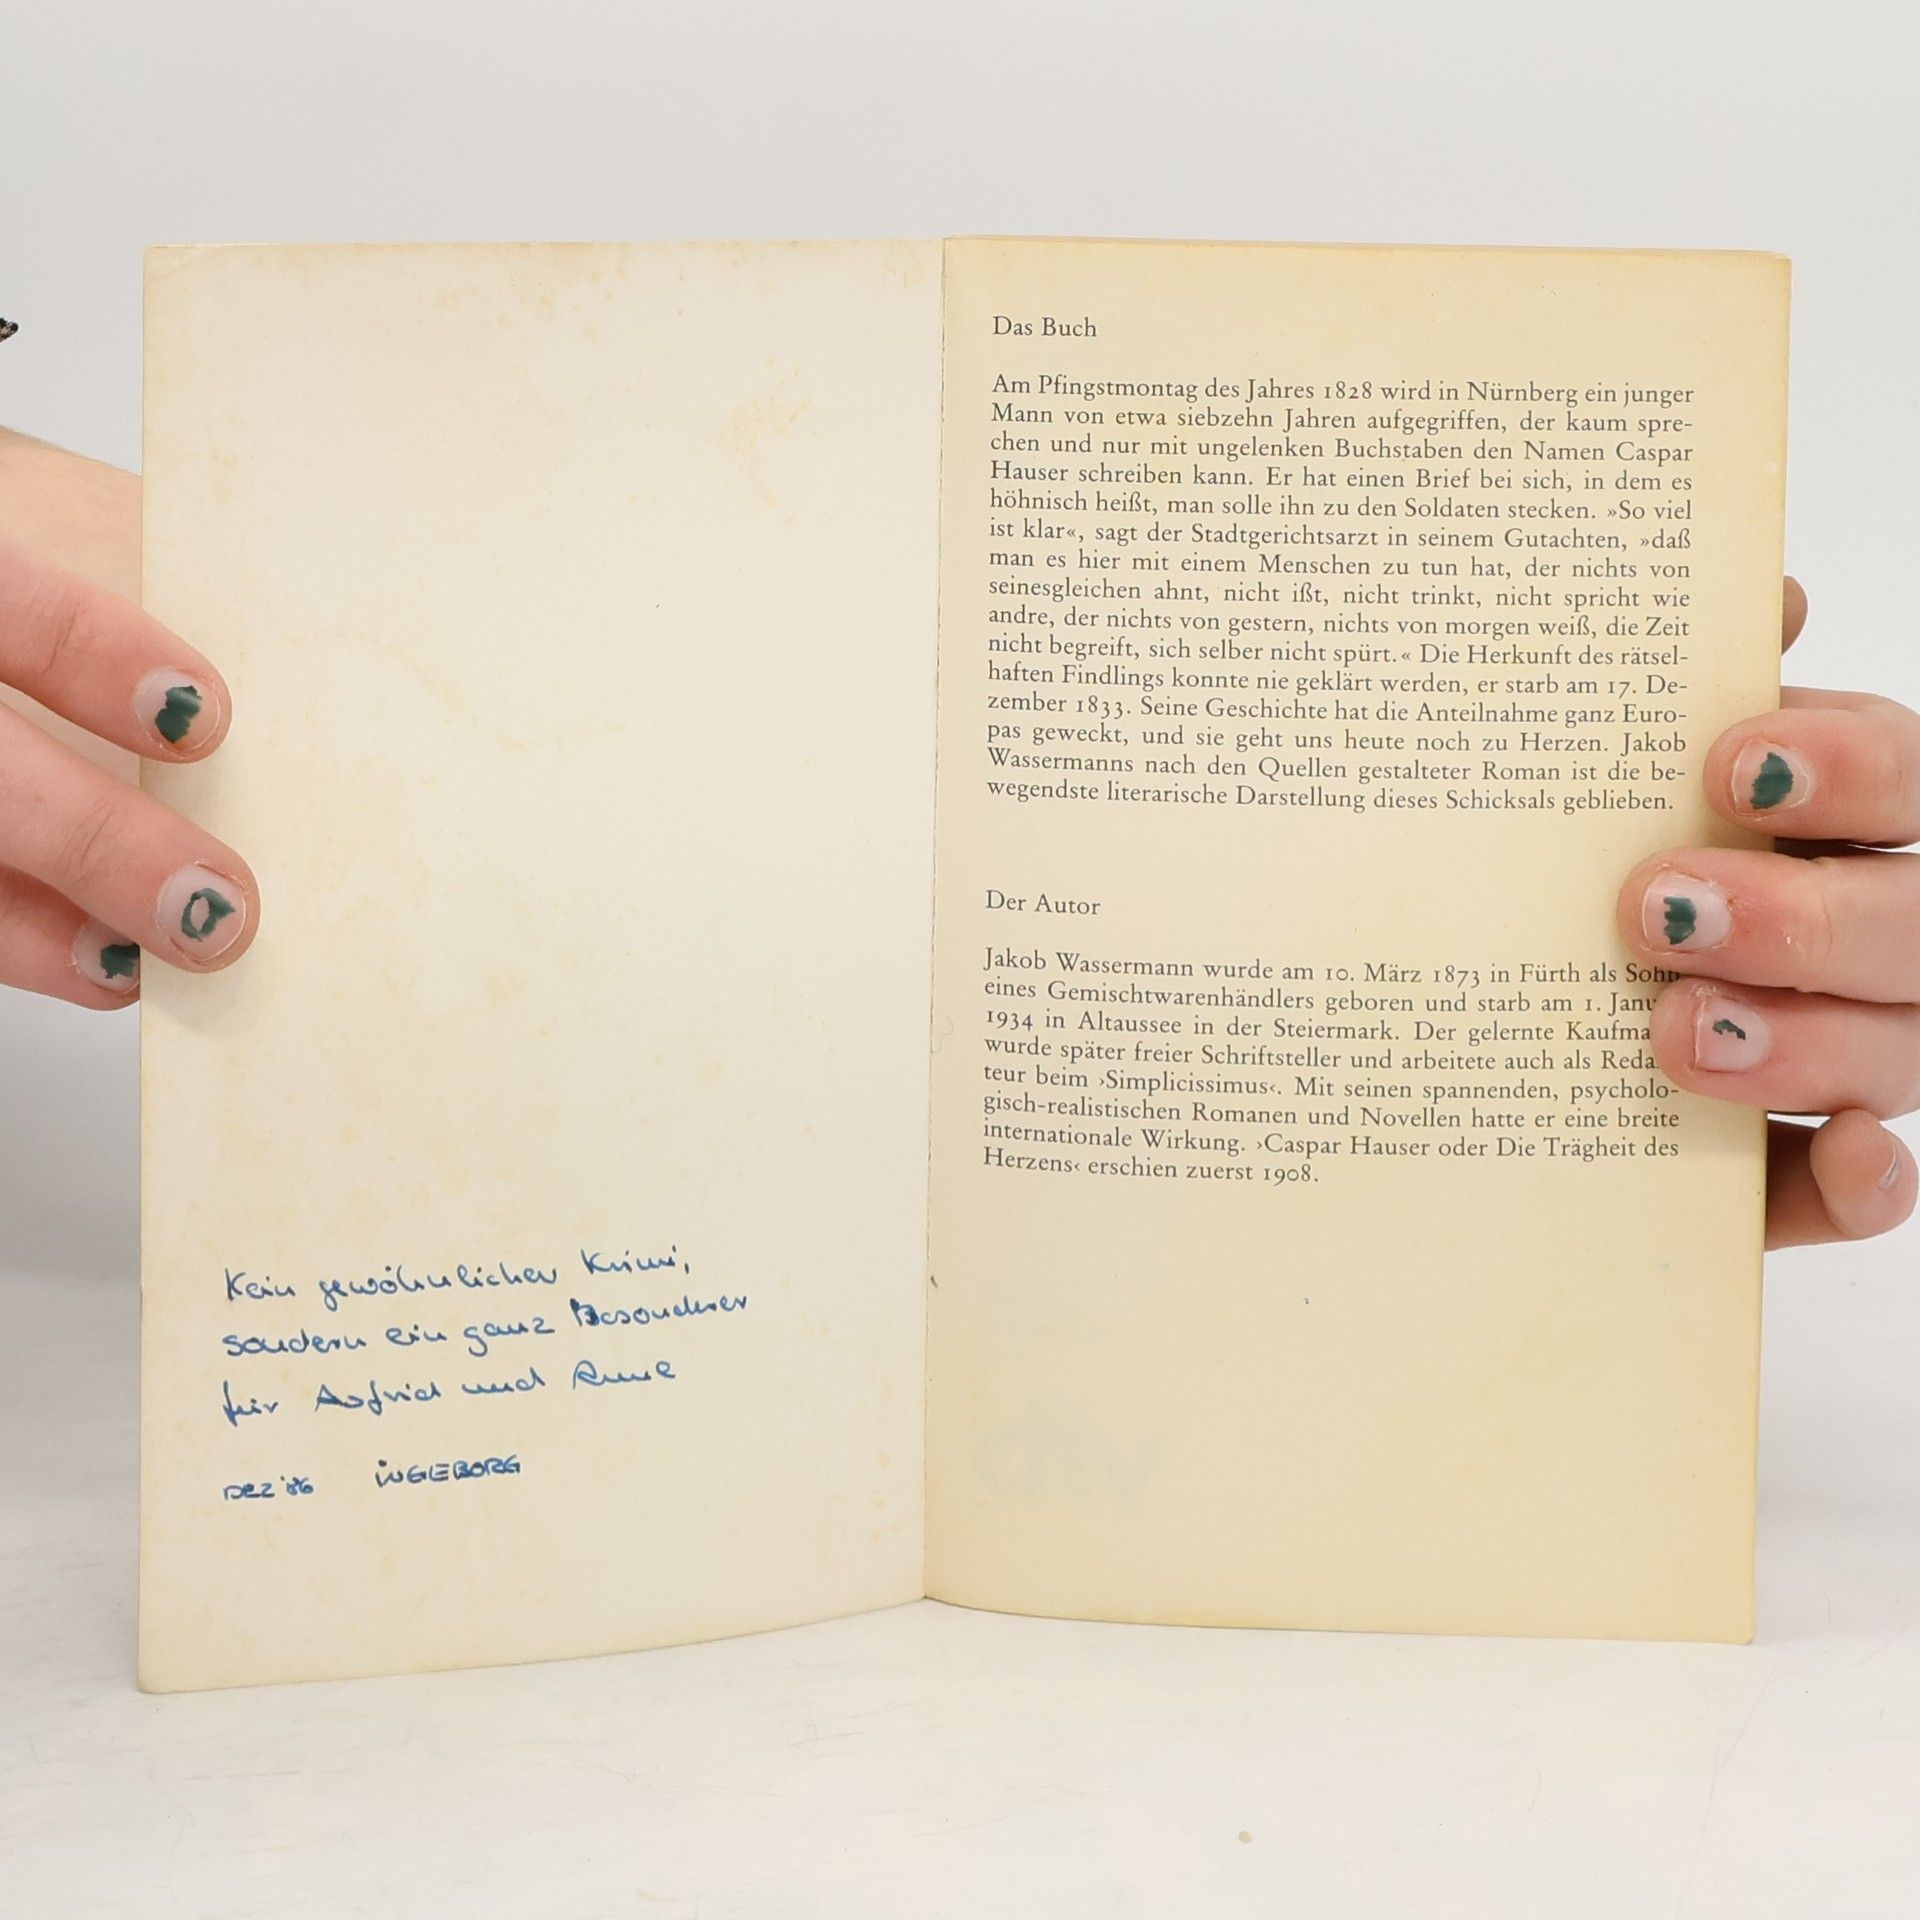 Kein gewöhnlicher Krimi,
sondern ein ganz Besonderer
für und Anne
DEZ '86 INGEBORG
Das Buch
Am Pfingstmontag des Jahres 1828 wird in Nürnberg ein junger
Mann von etwa siebzehn Jahren aufgegriffen, der kaum spre-
chen und nur mit ungelenken Buchstaben den Namen Caspar
Hauser schreiben kann. Er hat einen Brief bei sich, in dem es
höhnisch heißt, man solle ihn zu den Soldaten stecken. »So viel
ist klar«, sagt der Stadtgerichtsarzt in seinem Gutachten, »daß
man es hier mit einem Menschen zu tun hat, der nichts von
seinesgleichen ahnt, nicht ißt, nicht trinkt, nicht spricht wie
andre, der nichts von gestern, nichts von morgen weiß, die Zeit
nicht begreift, sich selber nicht spürt.« Die Herkunft des rätsel-
haften Findlings konnte nie geklärt werden, er starb am 17. De-
zember 1833. Seine Geschichte hat die Anteilnahme ganz Euro-
pas geweckt, und sie geht uns heute noch zu Herzen. Jakob
Wassermanns nach den Quellen gestalteter Roman ist die be-
wegendste literarische Darstellung dieses Schicksals geblieben.
Der Autor
Jakob Wassermann wurde am 10. März 1873 in Fürth als Sohn
eines Gemischtwarenhändlers geboren und starb am 1. Janu
1934 in Altaussee in der Steiermark. Der gelernte Kaufma
wurde später freier Schriftsteller und arbeitete auch als Reda
teur beim ›Simplicissimus‹. Mit seinen spannenden, psycholo-
gisch-realistischen Romanen und Novellen hatte er eine breite
internationale Wirkung. ›Caspar Hauser oder Die Trägheit des
Herzens‹ erschien zuerst 1908.